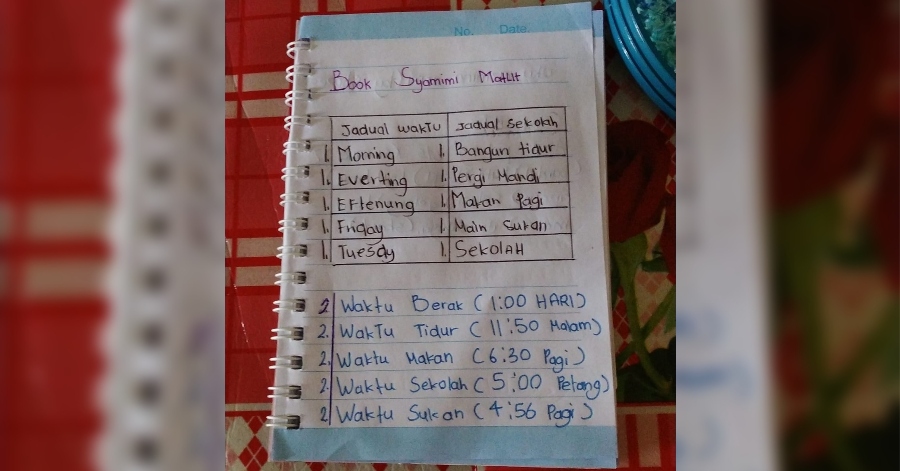 No. Date.
Book Syamimi Matlit
Jadual waktu Jadual sekolah
1. Morning 1. Bangun tidur
1. Everting 1. Pergi Mandi
1. Eftenung 1. Makan Pagi
1. Friday 1. Main Sukan
1. Tuesdy 1. Sekolah
2. Waktu Berak (1:00 HARI)
2. Waktu Tidur (11:50 Malam)
2. Waktu Makan (6:30 Pagi)
2. Waktu Sekolah (5:00 Petang)
2. Waktu Sukan (4:56 Pagi)